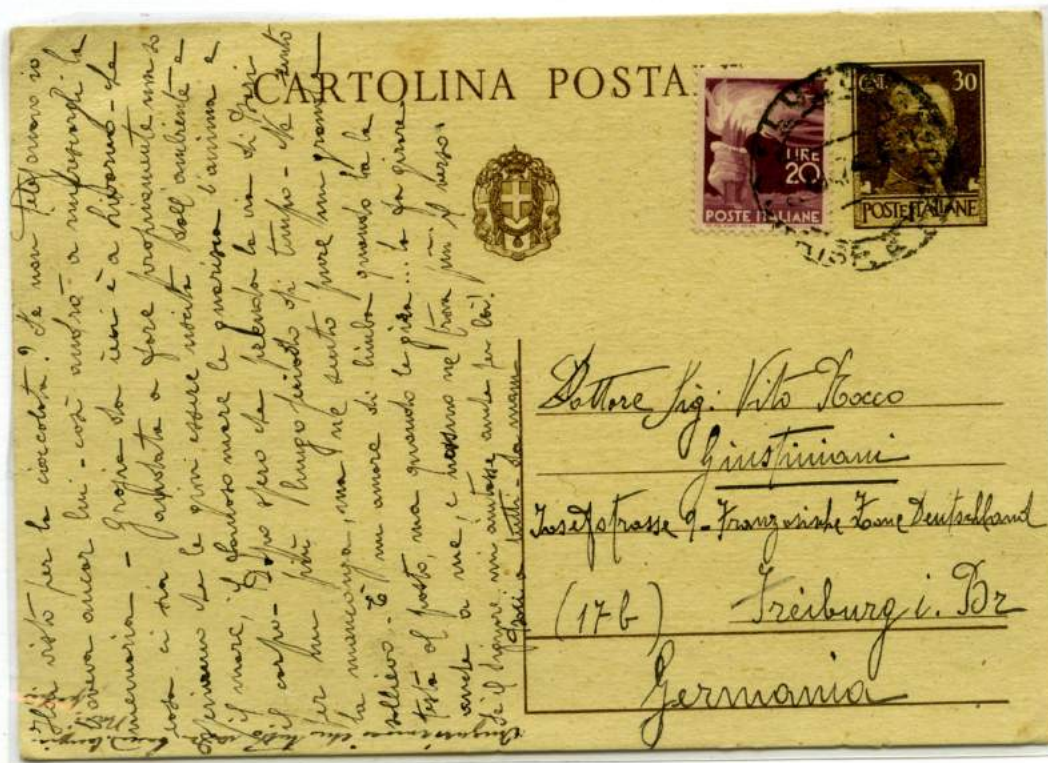 CARTOLINA POSTALE
CNT. 30
POSTE ITALIANE
LIRE
20
POSTE ITALIANE
Dottore Sig: Vito Rocco
Giustiniani
Josefstrasse 9 - Französische Zone Deutschland
(17b) Freiburg i. Br
Germania
Hai visto per la cioccolata? Se non telegrafavo io
aveva ancor lui - così andrà a rinfrescargli la
memoria - Grazia da ieri è a Livorno - La
cosa si sia a fare propriamente un so
speriamo che le giovi essere uscita dall'ambiente e
il mare, il famoso mare le guarisca l'anima e
il corpo - Dopo spero che prenda la via di
per un più lungo periodo di tempo - Ne sento
la mancanza, ma ne sento pure un grande
sollievo - È un amore di bimba quando ha la
testa al posto, ma quando le gira... la fa girare
anche a me, e nessuno ne trova più il verso.
Se il Signore mi aiutasse anche per lei!
Baci a tutti - La mamma